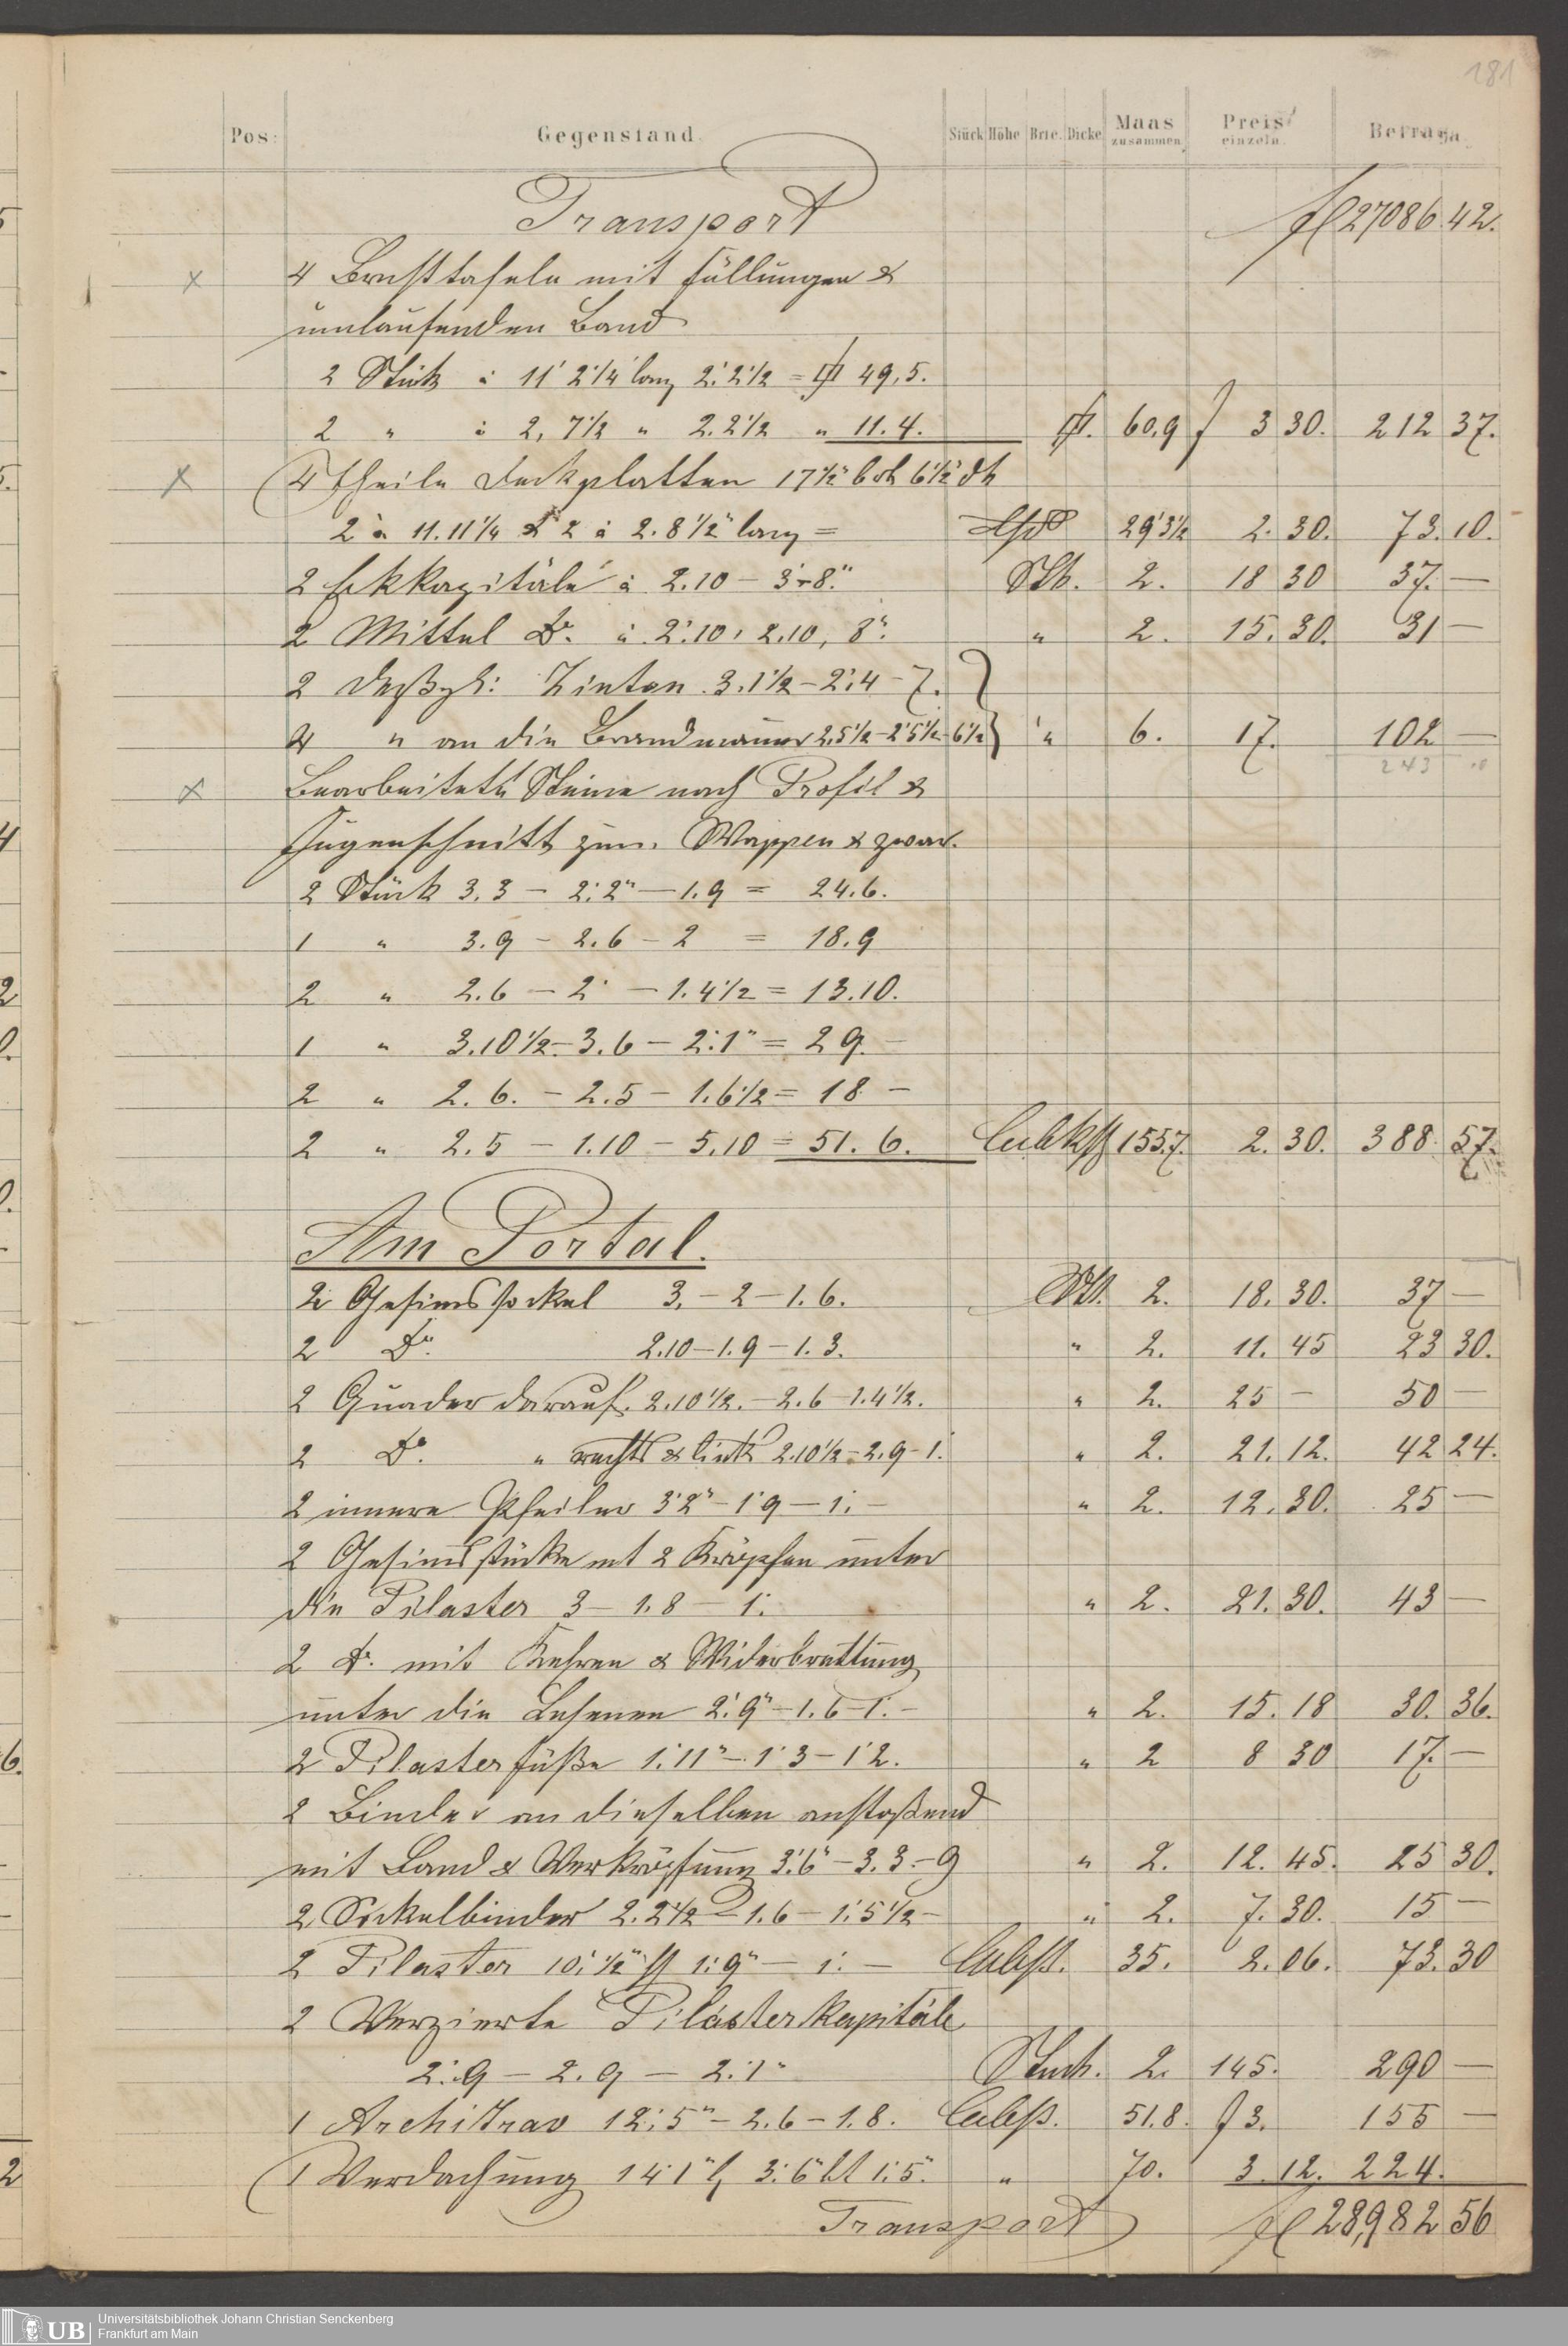 181
Pos: Gegenstand. Stück Höhe Brte. Dicke Maas zusammen Preis einzeln. Betrag.
Transport fl 27086 42.
4 Brusttafeln mit Füllungen &
umlaufenden Band
2 Stück à 11' 2 1/4 lang 2.' 2 1/2 = 49.5.
2 " à 2, 7 1/2 " 2. 2 1/2 " 11. 4. 60.9 f 3 30. 212 37.
4 Theile Deckplatten 17 1/2" 6 1/2"
2 à 11. 11 1/4 & 2 à 2. 8 1/2" lang = 29' 3 1/2 2. 30. 73. 10.
2 Eckkapitäle à 2.10 – 3 – 8." Stk. 2. 18 30 37. —
2 Mittel Do. à 2.'10, 2.10, 8". " 2. 15. 30. 31 —
2 deßgl: Hinten 3. 1 1/2 – 2.'4 – 7. }
4 " an die Brandmauer 2. 5 1/2 – 2' 5 1/2 – 6 1/2 } " 6. 17. 102 —
243 10
Bearbeitete Steine nach Profil &
Fugenschnitt zum Wappen & zwar.
2 Stück 3. 3 – 2.' 2" – 1. 9 = 24. 6.
1 " 3. 9 – 2. 6 – 2 = 18. 9
2 " 2. 6 – 2' – 1. 4 1/2 = 13. 10.
1 " 3. 10 1/2 – 3. 6 – 2.' 1" = 29. –
2 " 2. 6. – 2. 5 – 1. 6 1/2 = 18 –
2 " 2. 5 – 1. 10 – 5. 10 = 51. 6. 155.7. 2. 30. 388 57.
Am Portal.
2 Gesimssockel 3. – 2 – 1. 6. Stk. 2. 18. 30. 37 —
2 Do. 2. 10 – 1. 9 – 1. 3. " 2. 11. 45 23 30.
2 Quader darauf. 2. 10 1/2. – 2. 6 – 1. 4 1/2. " 2. 25 – 50 —
2 Do. " rechts & links 2. 10 1/2 – 2. 9 – 1.' " 2. 21. 12. 42 24.
2 innere Pfeiler 3' 2" – 1' 9 – 1.' – " 2. 12. 30. 25 —
2 Gesimsstücke mt 2 Kröpfen unter
die Pilaster 3 – 1. 8 – 1.' " 2. 21. 30. 43 —
2 Do. mit Kehren & Widerbrettung
unter die Lesenen 2.' 9" – 1. 6 – 1.' – " 2. 15. 18 30. 36.
2 Pilasterfüße 1.' 11" – 1' 3 – 1' 2. " 2 8 30 17. —
2 Binder an dieselben anstoßend
mit Band & Verkröpfung 3.' 6" – 3. 3. – 9 " 2. 12. 45. 25 30.
2 Sockelbinder 2. 2 1/2 – 1. 6 – 1.' 5 1/2 – " 2. 7. 30. 15 —
2 Pilaster 10.' 1/2" 1.' 9" – 1.' – Cubß. 35. 2. 06. 73. 30
2 Verzierte Pilasterkapitäle
2.' 9 – 2. 9 – 2.' 1" Stuck. 2. 145. 290 —
1 Architrav 12.' 5" – 2. 6 – 1. 8. Cubß. 51. 8. f 3. 155 —
1 Verdachung 14' 1" 3.' 6" 1.' 5". " 70. 3. 12. 224.
Transport fl 28,982 56
UB
Universitätsbibliothek Johann Christian Senckenberg
Frankfurt am Main